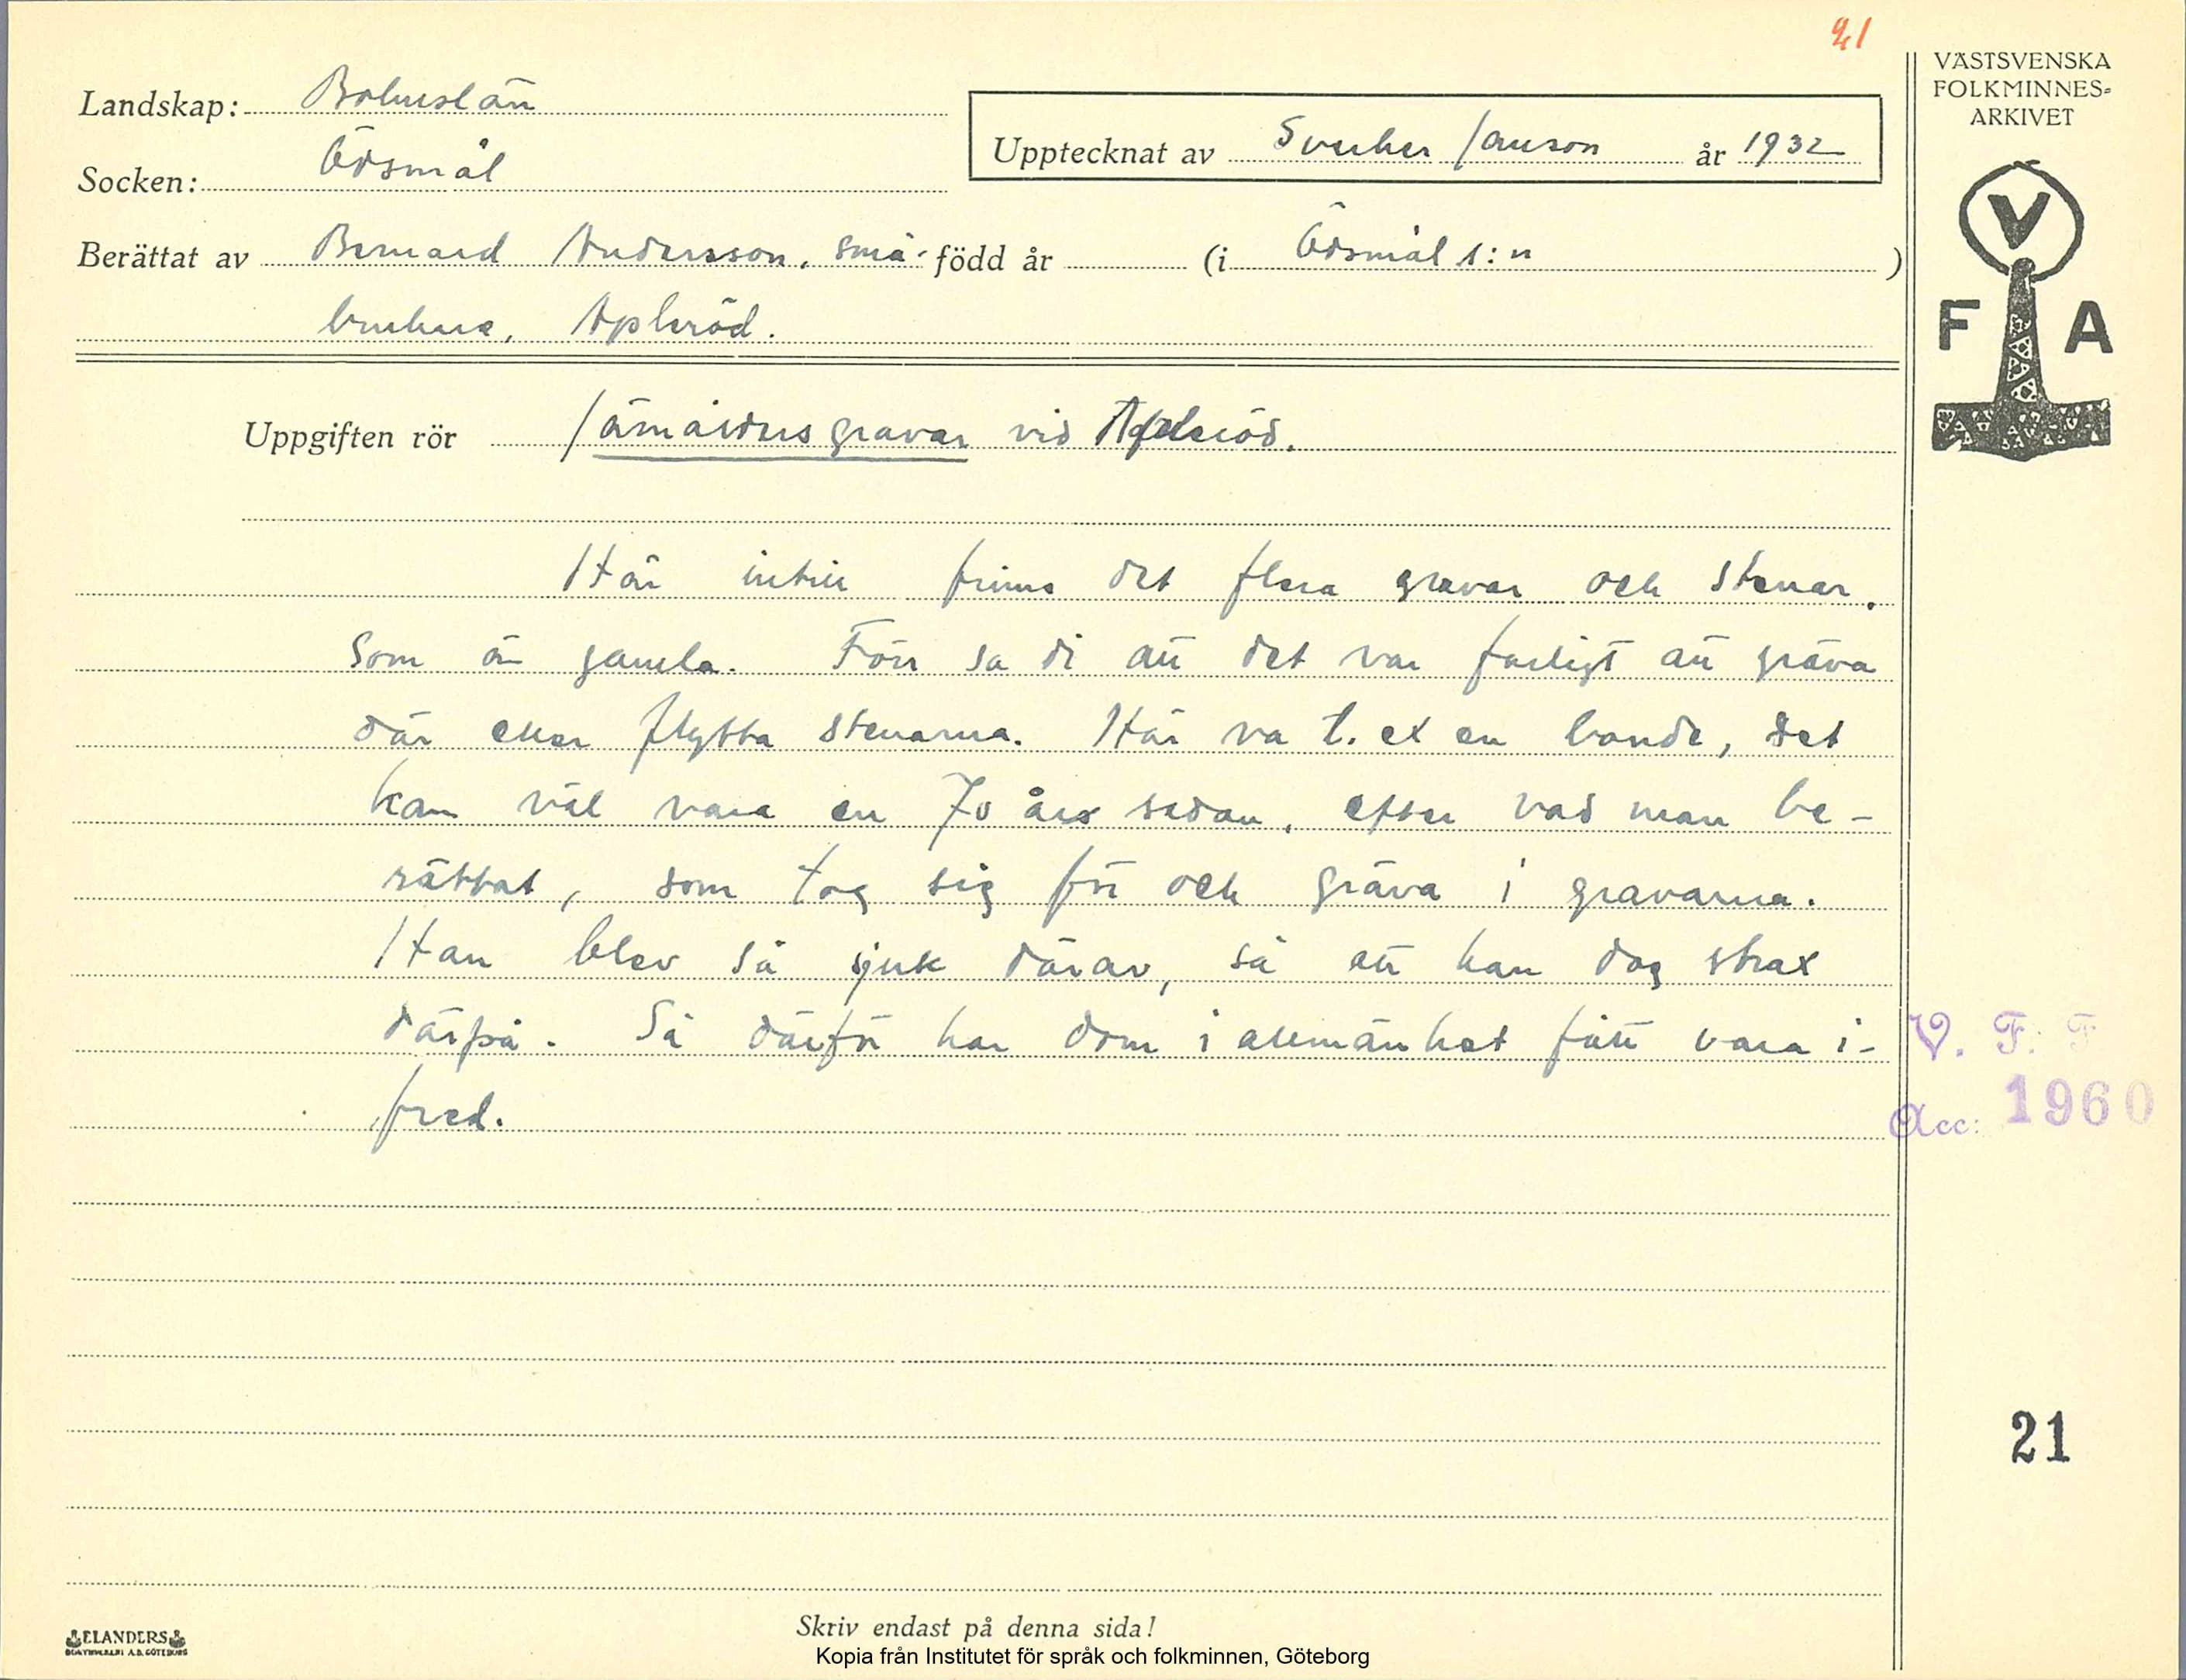 21
VÄSTSVENSKA
FOLKMINNES-
ARKIVET
Landskap: Bohuslän
Upptecknat av Sverker Janson år 1932
Socken: Ödsmål
Berättat av Bernard Andersson, små- född år (i Ödsmål s:n )
brukare, Apleröd.
V
F A
Uppgiften rör Järnåldersgravar vid Apleröd.
Här intill finns det flera gravar och stenar,
som är gamla. Förr sa di att det var farligt att gräva
där eller flytta stenarna. Här va t. ex en bonde, det
kan väl vara en 70 års sedan, efter vad man be-
rättat, som tog sig för och gräva i gravarna.
Han blev så sjuk därav, så att han dog strax
därpå. Så därför har dom i allmänhet fått vara i-
fred.
V. F. F
Acc: 1960
21
Skriv endast på denna sida!
ELANDERS
Kopia från Institutet för språk och folkminnen, Göteborg